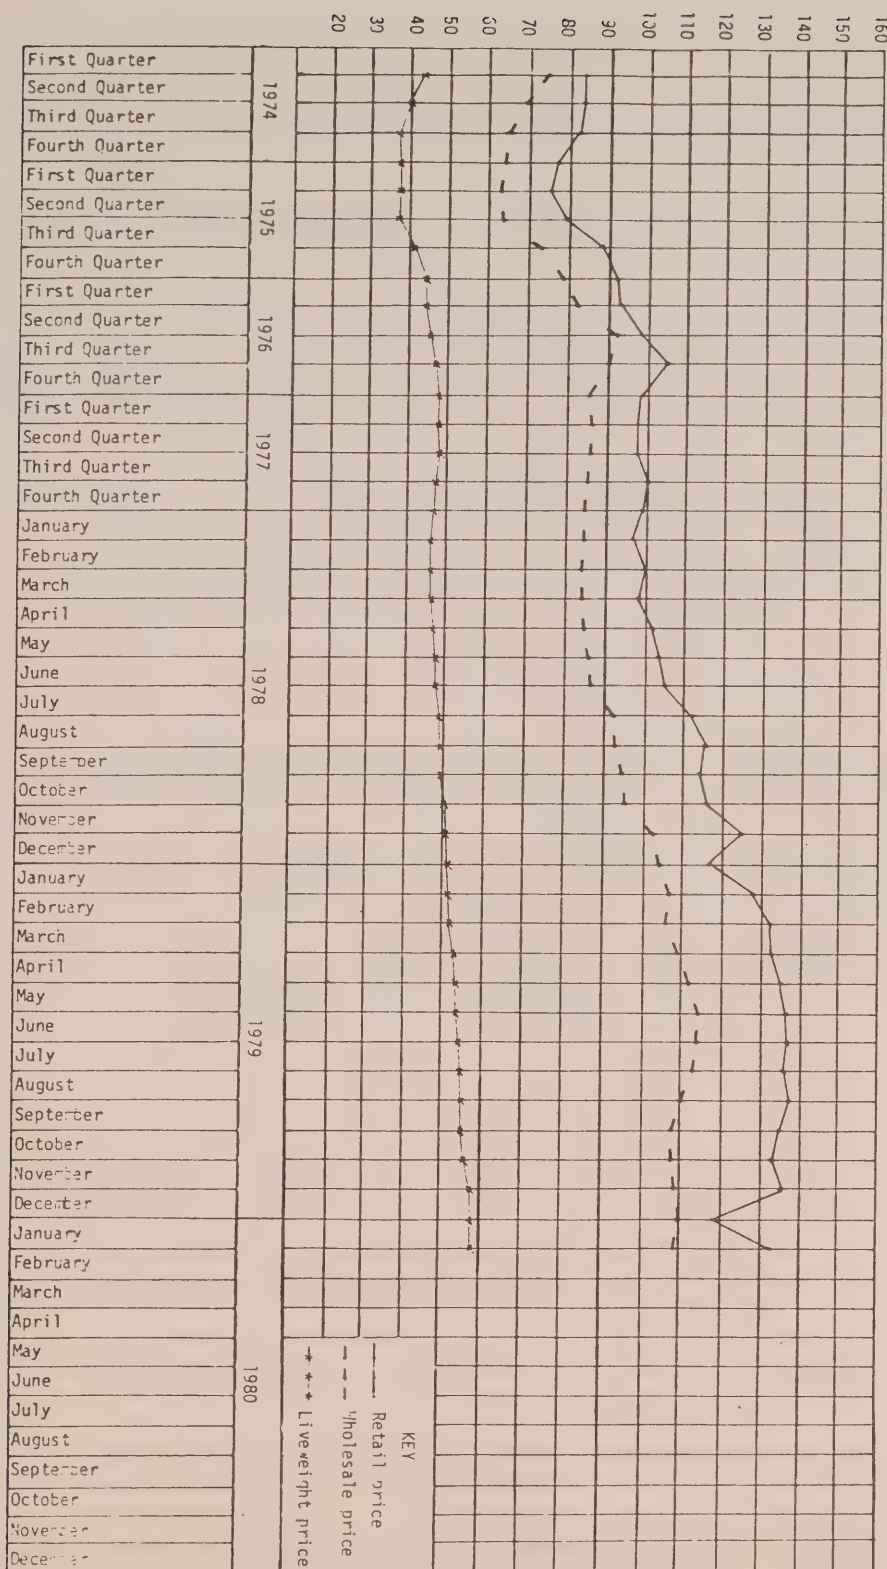 20 30 40 50 60 70 80 90 100 110 120 130 140 150 160
1974
First Quarter
Second Quarter
Third Quarter
Fourth Quarter
1975
First Quarter
Second Quarter
Third Quarter
Fourth Quarter
1976
First Quarter
Second Quarter
Third Quarter
Fourth Quarter
1977
First Quarter
Second Quarter
Third Quarter
Fourth Quarter
1978
January
February
March
April
May
June
July
August
September
October
November
December
1979
January
February
March
April
May
June
July
August
September
October
November
December
1980
January
February
March
April
May
June
July
August
September
October
November
December
KEY
Retail price
Wholesale price
Liveweight price